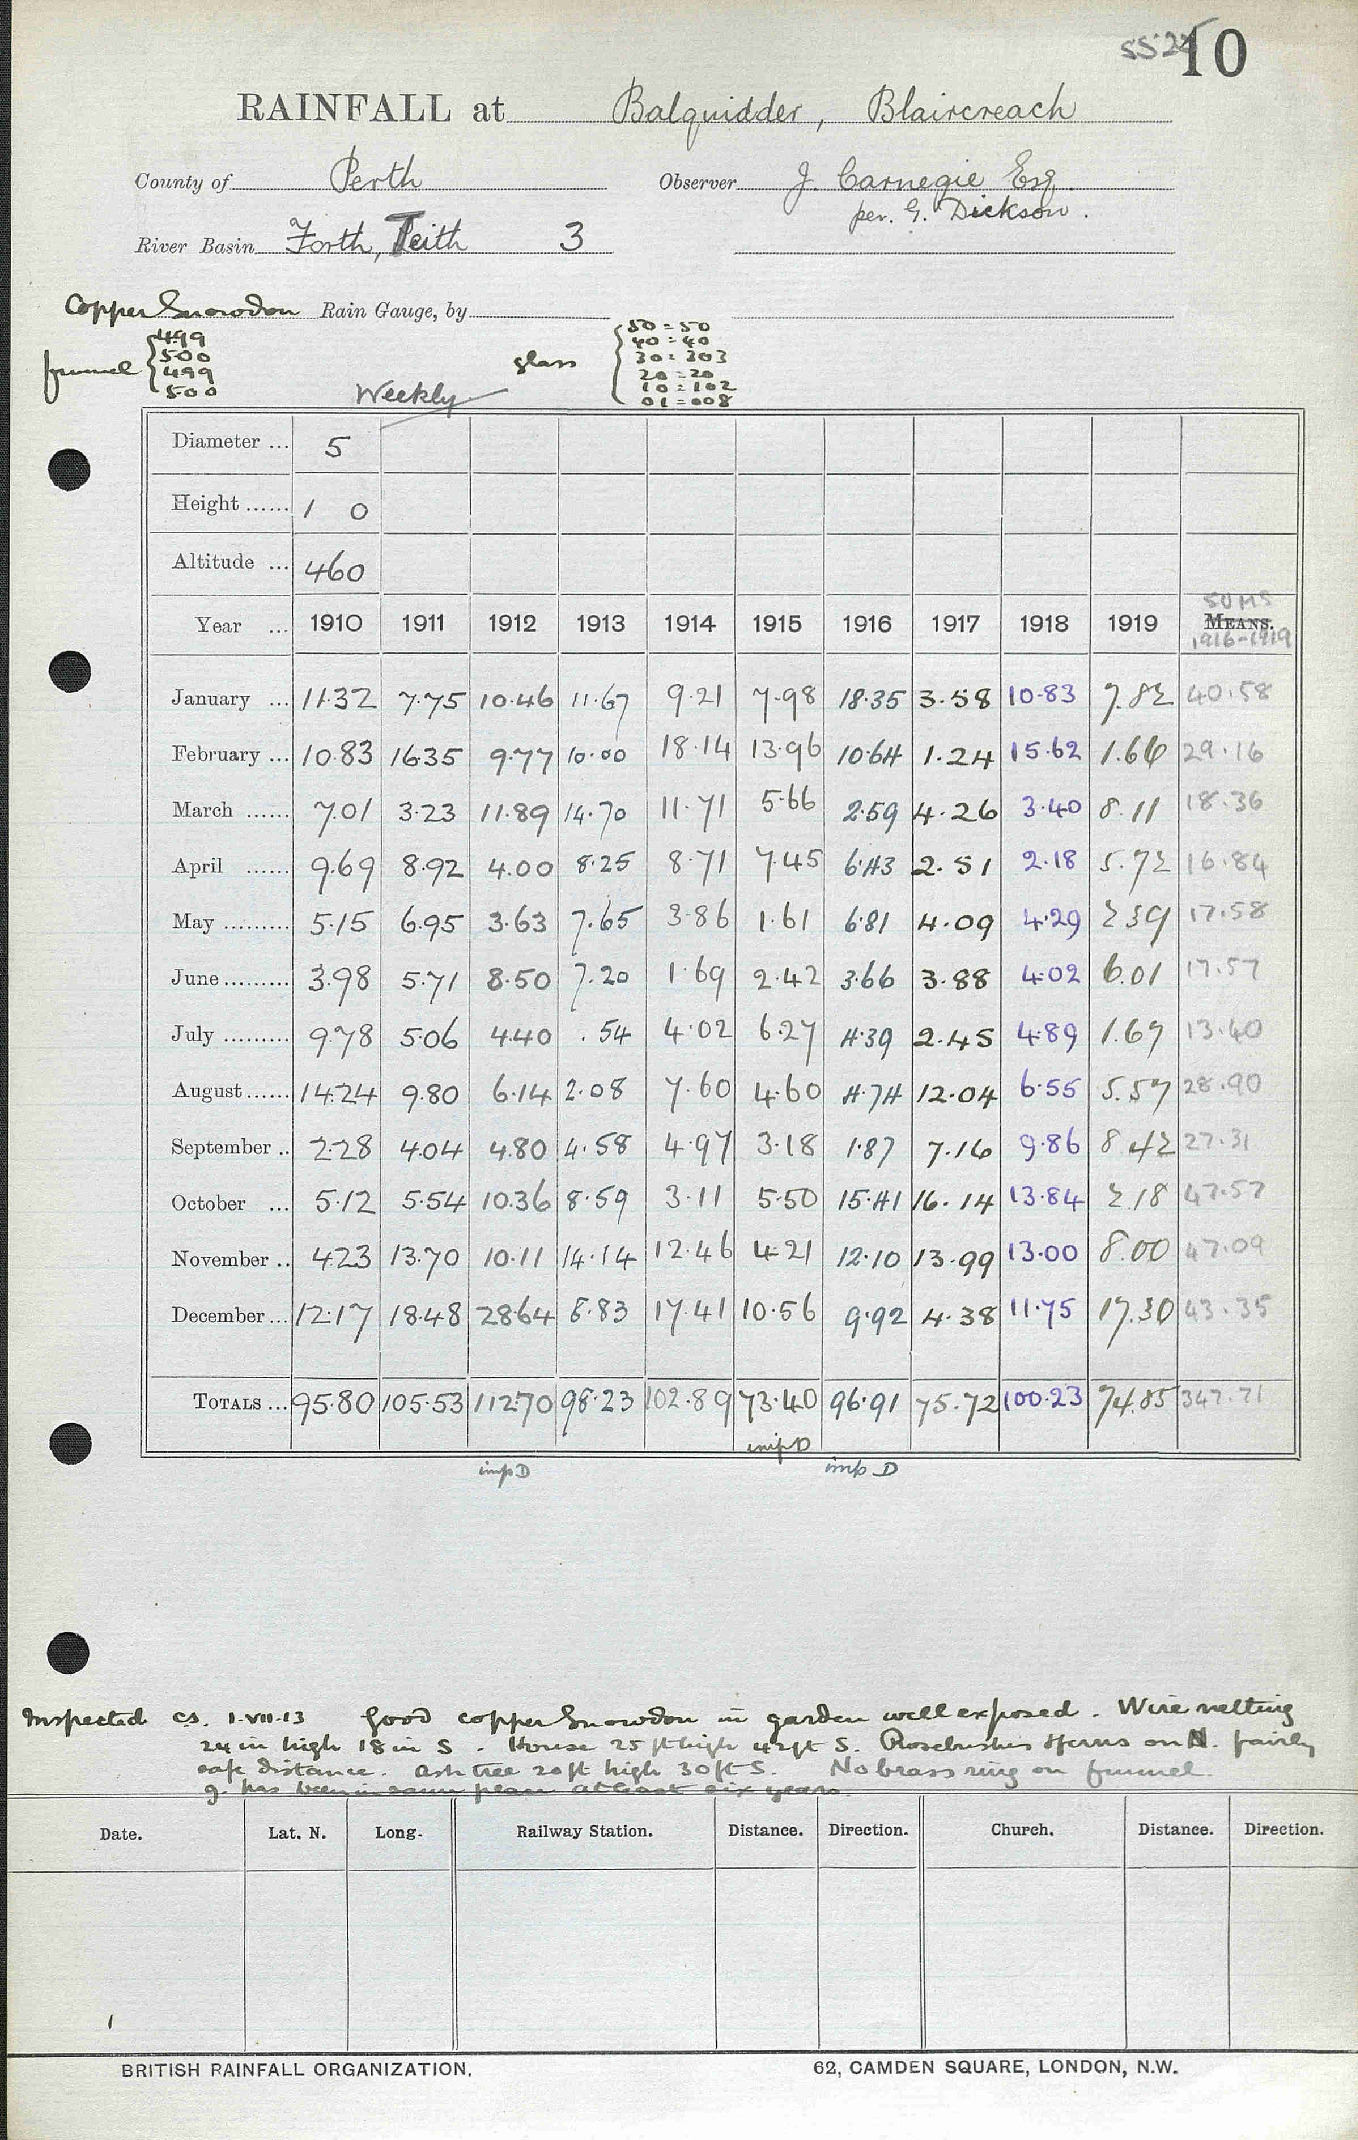 10
RAINFALL at Balquidder, Blaircreach
County of Perth Observer J. Carnegie Esq.
per. G. Dickson.
River Basin Forth, Teith 3
Copper Snowdon Rain Gauge, by
funnel 499 500 499 500 glass 50 = 50 40 = 40 30 = 303 20 = 20 10 = 102 01 = 008
Weekly
Diameter ... 5
Height ...... 1 0
Altitude ... 460
SUMS
Year ... 1910 1911 1912 1913 1914 1915 1916 1917 1918 1919 MEANS.
1916-1919
January ... 11.32 7.75 10.46 11.67 9.21 7.98 18.35 3.58 10.83 7.82 40.58
February ... 10.83 16.35 9.77 10.00 18.14 13.96 10.64 1.24 15.62 1.66 29.16
March ...... 7.01 3.23 11.89 14.70 11.71 5.66 2.59 4.26 3.40 8.11 18.36
April ...... 9.69 8.92 4.00 8.25 8.71 7.45 6.43 2.51 2.18 5.72 16.84
May ......... 5.15 6.95 3.63 7.65 3.86 1.61 6.81 4.09 4.29 2.39 17.58
June ......... 3.98 5.71 8.50 7.20 1.69 2.42 3.66 3.88 4.02 6.01 17.57
July ......... 9.78 5.06 4.40 .54 4.02 6.27 4.39 2.45 4.89 1.67 13.40
August ...... 14.24 9.80 6.14 2.08 7.60 4.60 4.74 12.04 6.55 5.57 28.90
September .. 2.28 4.04 4.80 4.58 4.97 3.18 1.87 7.16 9.86 8.42 27.31
October ... 5.12 5.54 10.36 8.59 3.11 5.50 15.41 16.14 13.84 2.18 47.57
November .. 4.23 13.70 10.11 14.14 12.46 4.21 12.10 13.99 13.00 8.00 47.09
December ... 12.17 18.48 28.64 8.83 17.41 10.56 9.92 4.38 11.75 17.30 43.35
TOTALS ... 95.80 105.53 112.70 98.23 102.89 73.40 96.91 75.72 100.23 74.85 347.71
imp D
imp D imp D
Inspected CS. 1.VII.13 Good copper Snowdon in garden well exposed. Wire netting
24 in high 18 in S. House 25 ft high 42 ft S. Rosebushes & ferns on N. fairly
safe distance. Ash tree 20 ft high 30 ft S. No brass ring on funnel.
g. has been in same place at least six years.
Date. Lat. N. Long. Railway Station. Distance. Direction. Church. Distance. Direction.
BRITISH RAINFALL ORGANIZATION. 62, CAMDEN SQUARE, LONDON, N.W.